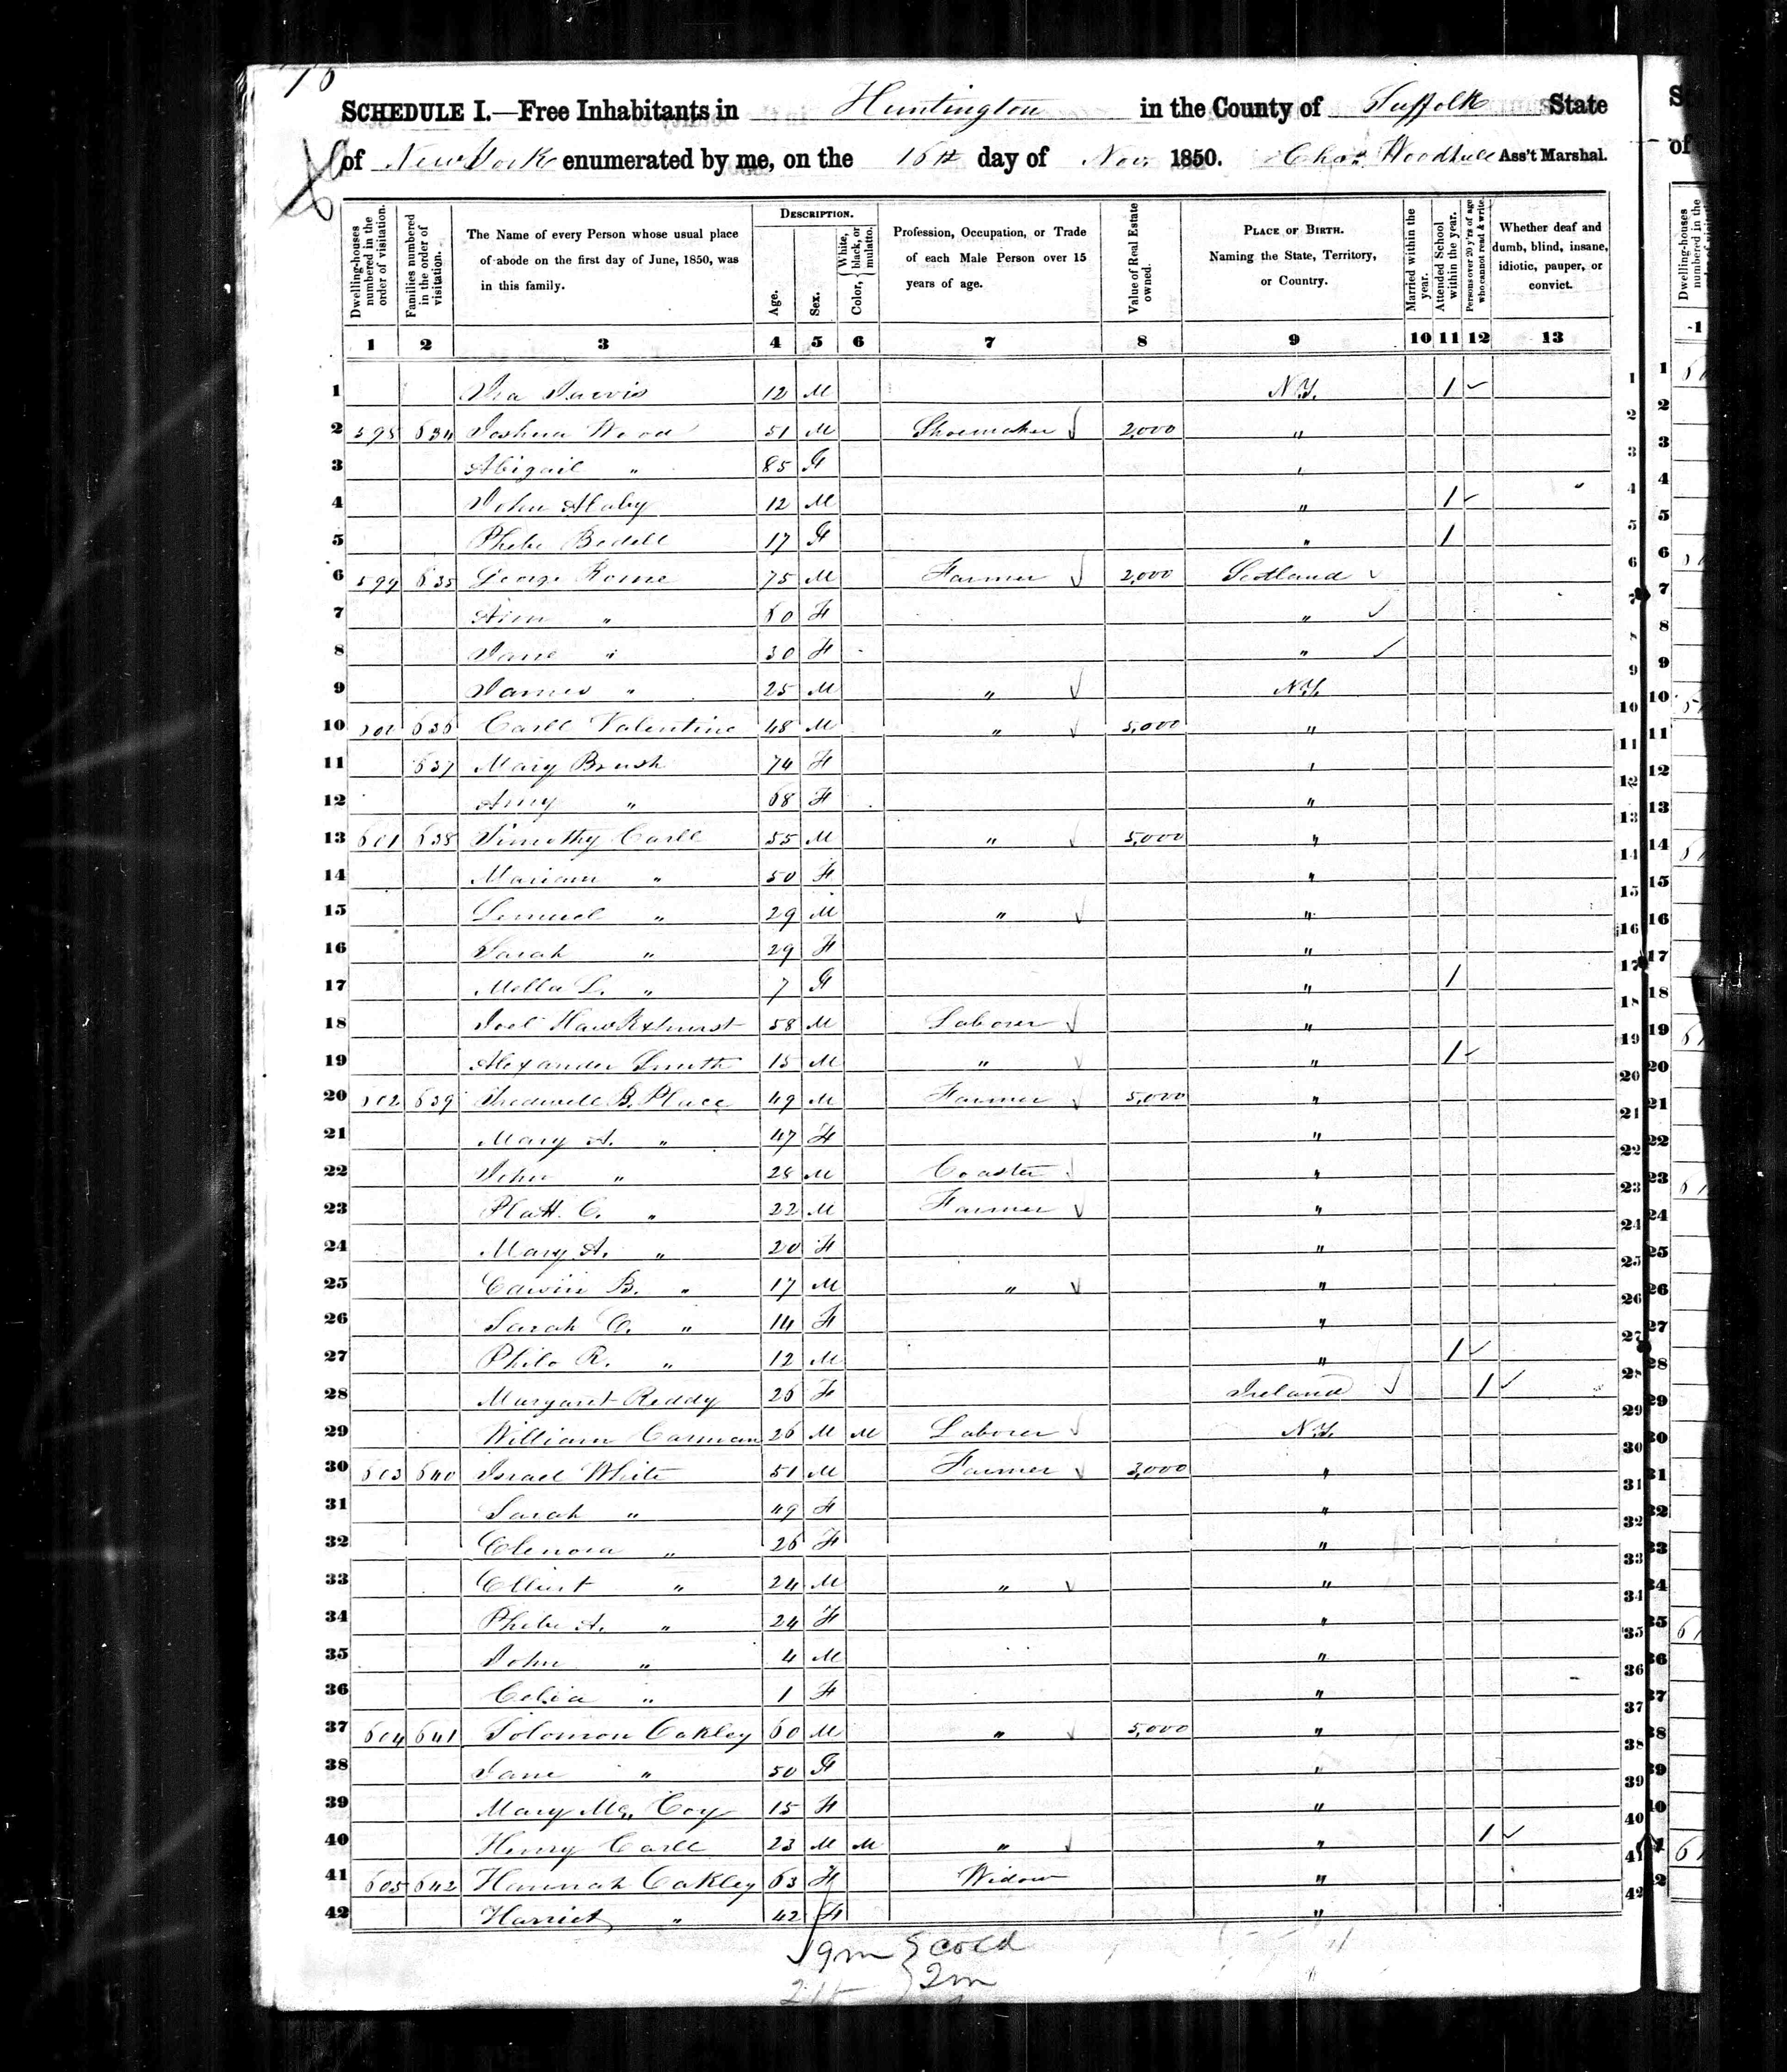 SCHEDULE I.—Free Inhabitants in Huntington in the County of Suffolk State
of New York enumerated by me, on the 16th day of Nov. 1850. Chas. Woodhull Ass't Marshal.
Dwelling-houses numbered in the order of visitation.
Families numbered in the order of visitation.
The Name of every Person whose usual place of abode on the first day of June, 1850, was in this family.
DESCRIPTION.
Age.
Sex.
Color, { White, black, or mulatto.
Profession, Occupation, or Trade of each Male Person over 15 years of age.
Value of Real Estate owned.
PLACE OF BIRTH. Naming the State, Territory, or Country.
Married within the year.
Attended School within the year.
Persons over 20 y'rs of age who cannot read & write.
Whether deaf and dumb, blind, insane, idiotic, pauper, or convict.
1 2 3 4 5 6 7 8 9 10 11 12 13
1 Ira Jarvis 12 M N.Y. 1 1
2 598 634 Joshua Wood 51 M Shoemaker 2,000 " 2
3 Abigail " 85 F " 3
4 John 12 M " 1 4
5 Phebe Bedell 17 F " 1 5
6 599 635 George Rome 75 M Farmer 2,000 Scotland 6
7 Ann " 60 F " 7
8 Jane " 30 F " 8
9 James " 25 M " N.Y. 9
10 636 Carll Valentine 48 M " 5,000 " 10
11 637 Mary Brush 74 F " 11
12 Amy " 68 F " 12
13 601 638 Timothy Carll 55 M " 5,000 " 13
14 Mariam " 50 F " 14
15 Lemuel " 29 M " " 15
16 Sarah " 29 F " 16
17 Mella L. " 7 F " 1 17
18 Joel Hawkxhurst 58 M Laborer " 18
19 Alexander Smith 15 M " " 1 19
20 602 639 Thedwell B. Place 49 M Farmer 5,000 " 20
21 Mary A. " 47 F " 21
22 John " 28 M Coaster " 22
23 Platt C. " 22 M Farmer " 23
24 Mary A. " 20 F " 24
25 Edwin B. " 17 M " " 25
26 Sarah C. " 14 F " 26
27 Philo R. " 12 M " 1 27
28 Margaret Reddy 26 F Ireland 1 28
29 William Carman 26 M M Laborer N.Y. 29
30 603 640 Israel White 51 M Farmer 3,000 " 30
31 Sarah " 49 F " 31
32 Elenora " 26 F " 32
33 Elbert " 24 M " " 33
34 Phebe A. " 24 F " 34
35 John " 4 M " 35
36 Celia " 1 F " 36
37 604 641 Solomon Oakley 60 M " 5,000 " 37
38 Jane " 50 F " 38
39 Mary Mc Coy 15 F " 39
40 Henry Carll 23 M M " " 1 40
41 605 642 Hannah Oakley 63 F Widow " 41
42 Harriet " 42 F " 42
19m cold
21f 2m